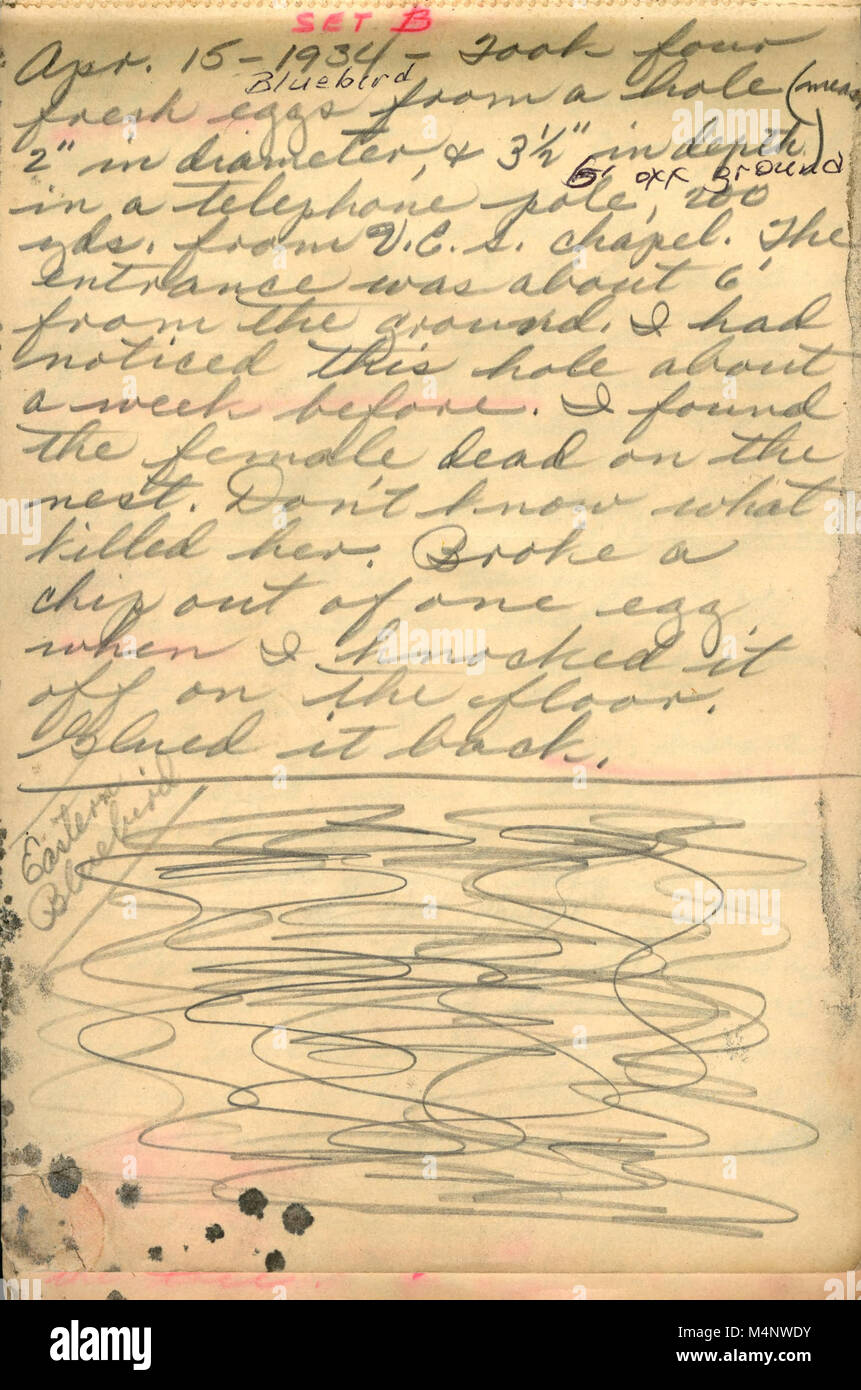 SET B
Apr. 15-1934- Took four
Bluebird
fresh eggs from a hole (meas.
2" in diameter, & 3½" in depth)
6' off ground
in a telephone pole, 200
yds. from V.E.S. chapel. The
entrance was about 6'
from the ground. I had
noticed this hole about
a week before. I found
the female dead on the
nest. Don't know what
killed her. Broke a
chip out of one egg
when I knocked it
off on the floor.
Glued it back.
Eastern
Bluebird
alamy
Image ID: M4NWDY
www.alamy.com